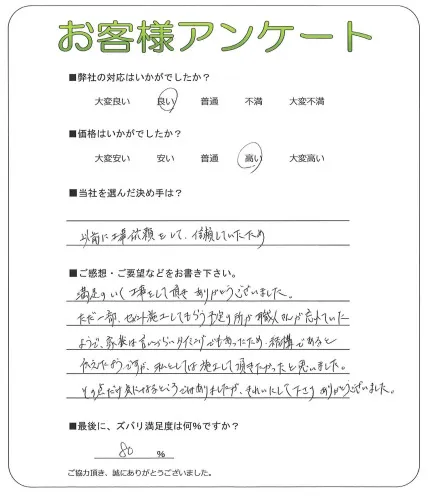 お客様アンケート
■弊社の対応はいかがでしたか？
大変良い 良い 普通 不満 大変不満
■価格はいかがでしたか？
大変安い 安い 普通 高い 大変高い
■当社を選んだ決め手は？
以前に工事依頼をして、信頼していたため
■ご感想・ご要望などをお書き下さい。
満足のいく工事をして頂き ありがとうございました。
ただ一部、施工してもらう予定の所が職人さんが忘れていた
ようで、家族は言いづらいタイミングでもあったため、結構であると
伝えたようですが、私としては施工して頂きたかったと思いました。
その点だけ気になるところではありましたが、きれいにして下さり ありがとうございました。
■最後に、ズバリ満足度は何%ですか？
80 %
ご協力頂き、誠にありがとうございました。